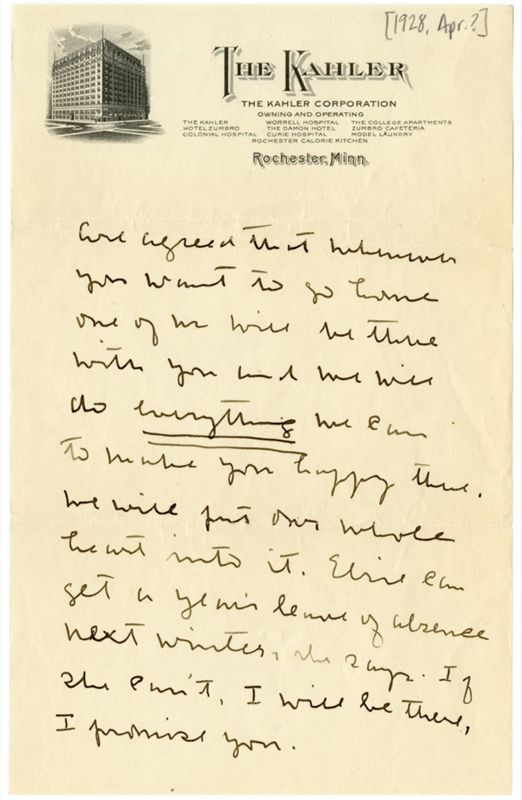 [1928, Apr.?]
THE KAHLER
THE KAHLER CORPORATION
OWNING AND OPERATING
THE KAHLER WORRELL HOSPITAL THE COLLEGE APARTMENTS
HOTEL ZUMBRO THE DAMON HOTEL ZUMBRO CAFETERIA
COLONIAL HOSPITAL CURIE HOSPITAL MODEL LAUNDRY
ROCHESTER CALORIE KITCHEN
Rochester, Minn.
are agreed that whenever
you want to go home
one of us will be there
with you and we will
do everything we can
to make you happy there.
We will put our whole
heart into it. Elsie can
get a year's leave of absence
next winter, she says. If
she can't, I will be there,
I promise you.